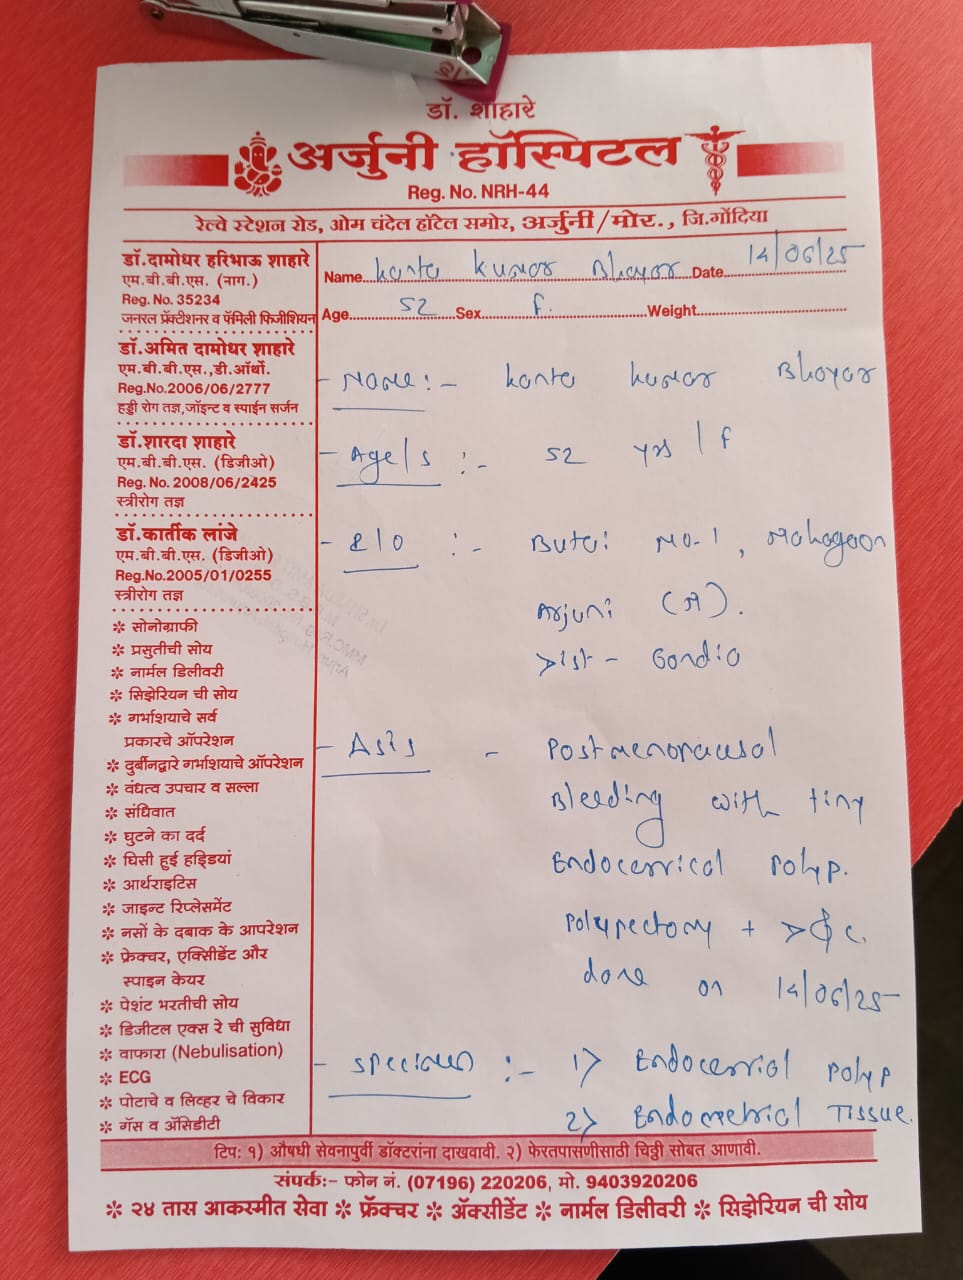 डॉ. शाहारे
अर्जुनी हॉस्पिटल
Reg. No. NRH-44
रेल्वे स्टेशन रोड, ओम चंदेल हॉटेल समोर, अर्जुनी/मोर., जि.गोंदिया
डॉ.दामोधर हरिभाऊ शाहारे
एम.बी.बी.एस. (नाग.)
Reg. No. 35234
जनरल प्रॅक्टीशनर व फॅमिली फिजीशियन
डॉ.अमित दामोधर शाहारे
एम.बी.बी.एस.,डी.ऑर्थो.
Reg.No.2006/06/2777
हड्डी रोग तज्ञ,जॉइन्ट व स्पाईन सर्जन
डॉ.शारदा शाहारे
एम.बी.बी.एस. (डिजीओ)
Reg. No. 2008/06/2425
स्त्रीरोग तज्ञ
डॉ.कार्तीक लांजे
एम.बी.बी.एस. (डिजीओ)
Reg.No.2005/01/0255
स्त्रीरोग तज्ञ
❊ सोनोग्राफी
❊ प्रसुतीची सोय
❊ नार्मल डिलीवरी
❊ सिझेरियन ची सोय
❊ गर्भाशयाचे सर्व
प्रकारचे ऑपरेशन
❊ दुर्बीनद्वारे गर्भाशयाचे ऑपरेशन
❊ वंधत्व उपचार व सल्ला
❊ संधिवात
❊ घुटने का दर्द
❊ घिसी हुई हड्डियां
❊ आर्थराइटिस
❊ जाइन्ट रिप्लेसमेंट
❊ नसों के दबाक के आपरेशन
❊ फ्रेक्चर, एक्सिडेंट और
स्पाइन केयर
❊ पेशंट भरतीची सोय
❊ डिजीटल एक्स रे ची सुविधा
❊ वाफारा (Nebulisation)
❊ ECG
❊ पोटाचे व लिव्हर चे विकार
❊ गॅस व ॲसिडीटी
Name Kanta Kumar Bhoyar Date 14/06/25
Age 52 Sex F. Weight
- Name :- Kanta Kumar Bhoyar
- Age/s :- 52 yrs / F
- R/O :- Butai No-1, Mahagaon
Arjuni (M).
Dist - Gondia
- Postmenopausal
Bleeding with tiny
Endocervical Polyp.
Polypectomy + D & C.
done on 14/06/25
- Specimen :- 1) Endocervical Polyp
2) Endometrial Tissue.
टिप: १) औषधी सेवनापुर्वी डॉक्टरांना दाखवावी. २) फेरतपासणीसाठी चिठ्ठी सोबत आणावी.
संपर्क:- फोन नं. (07196) 220206, मो. 9403920206
❊ २४ तास आकस्मीत सेवा ❊ फ्रॅक्चर ❊ ॲक्सीडेंट ❊ नार्मल डिलीवरी ❊ सिझेरियन ची सोय